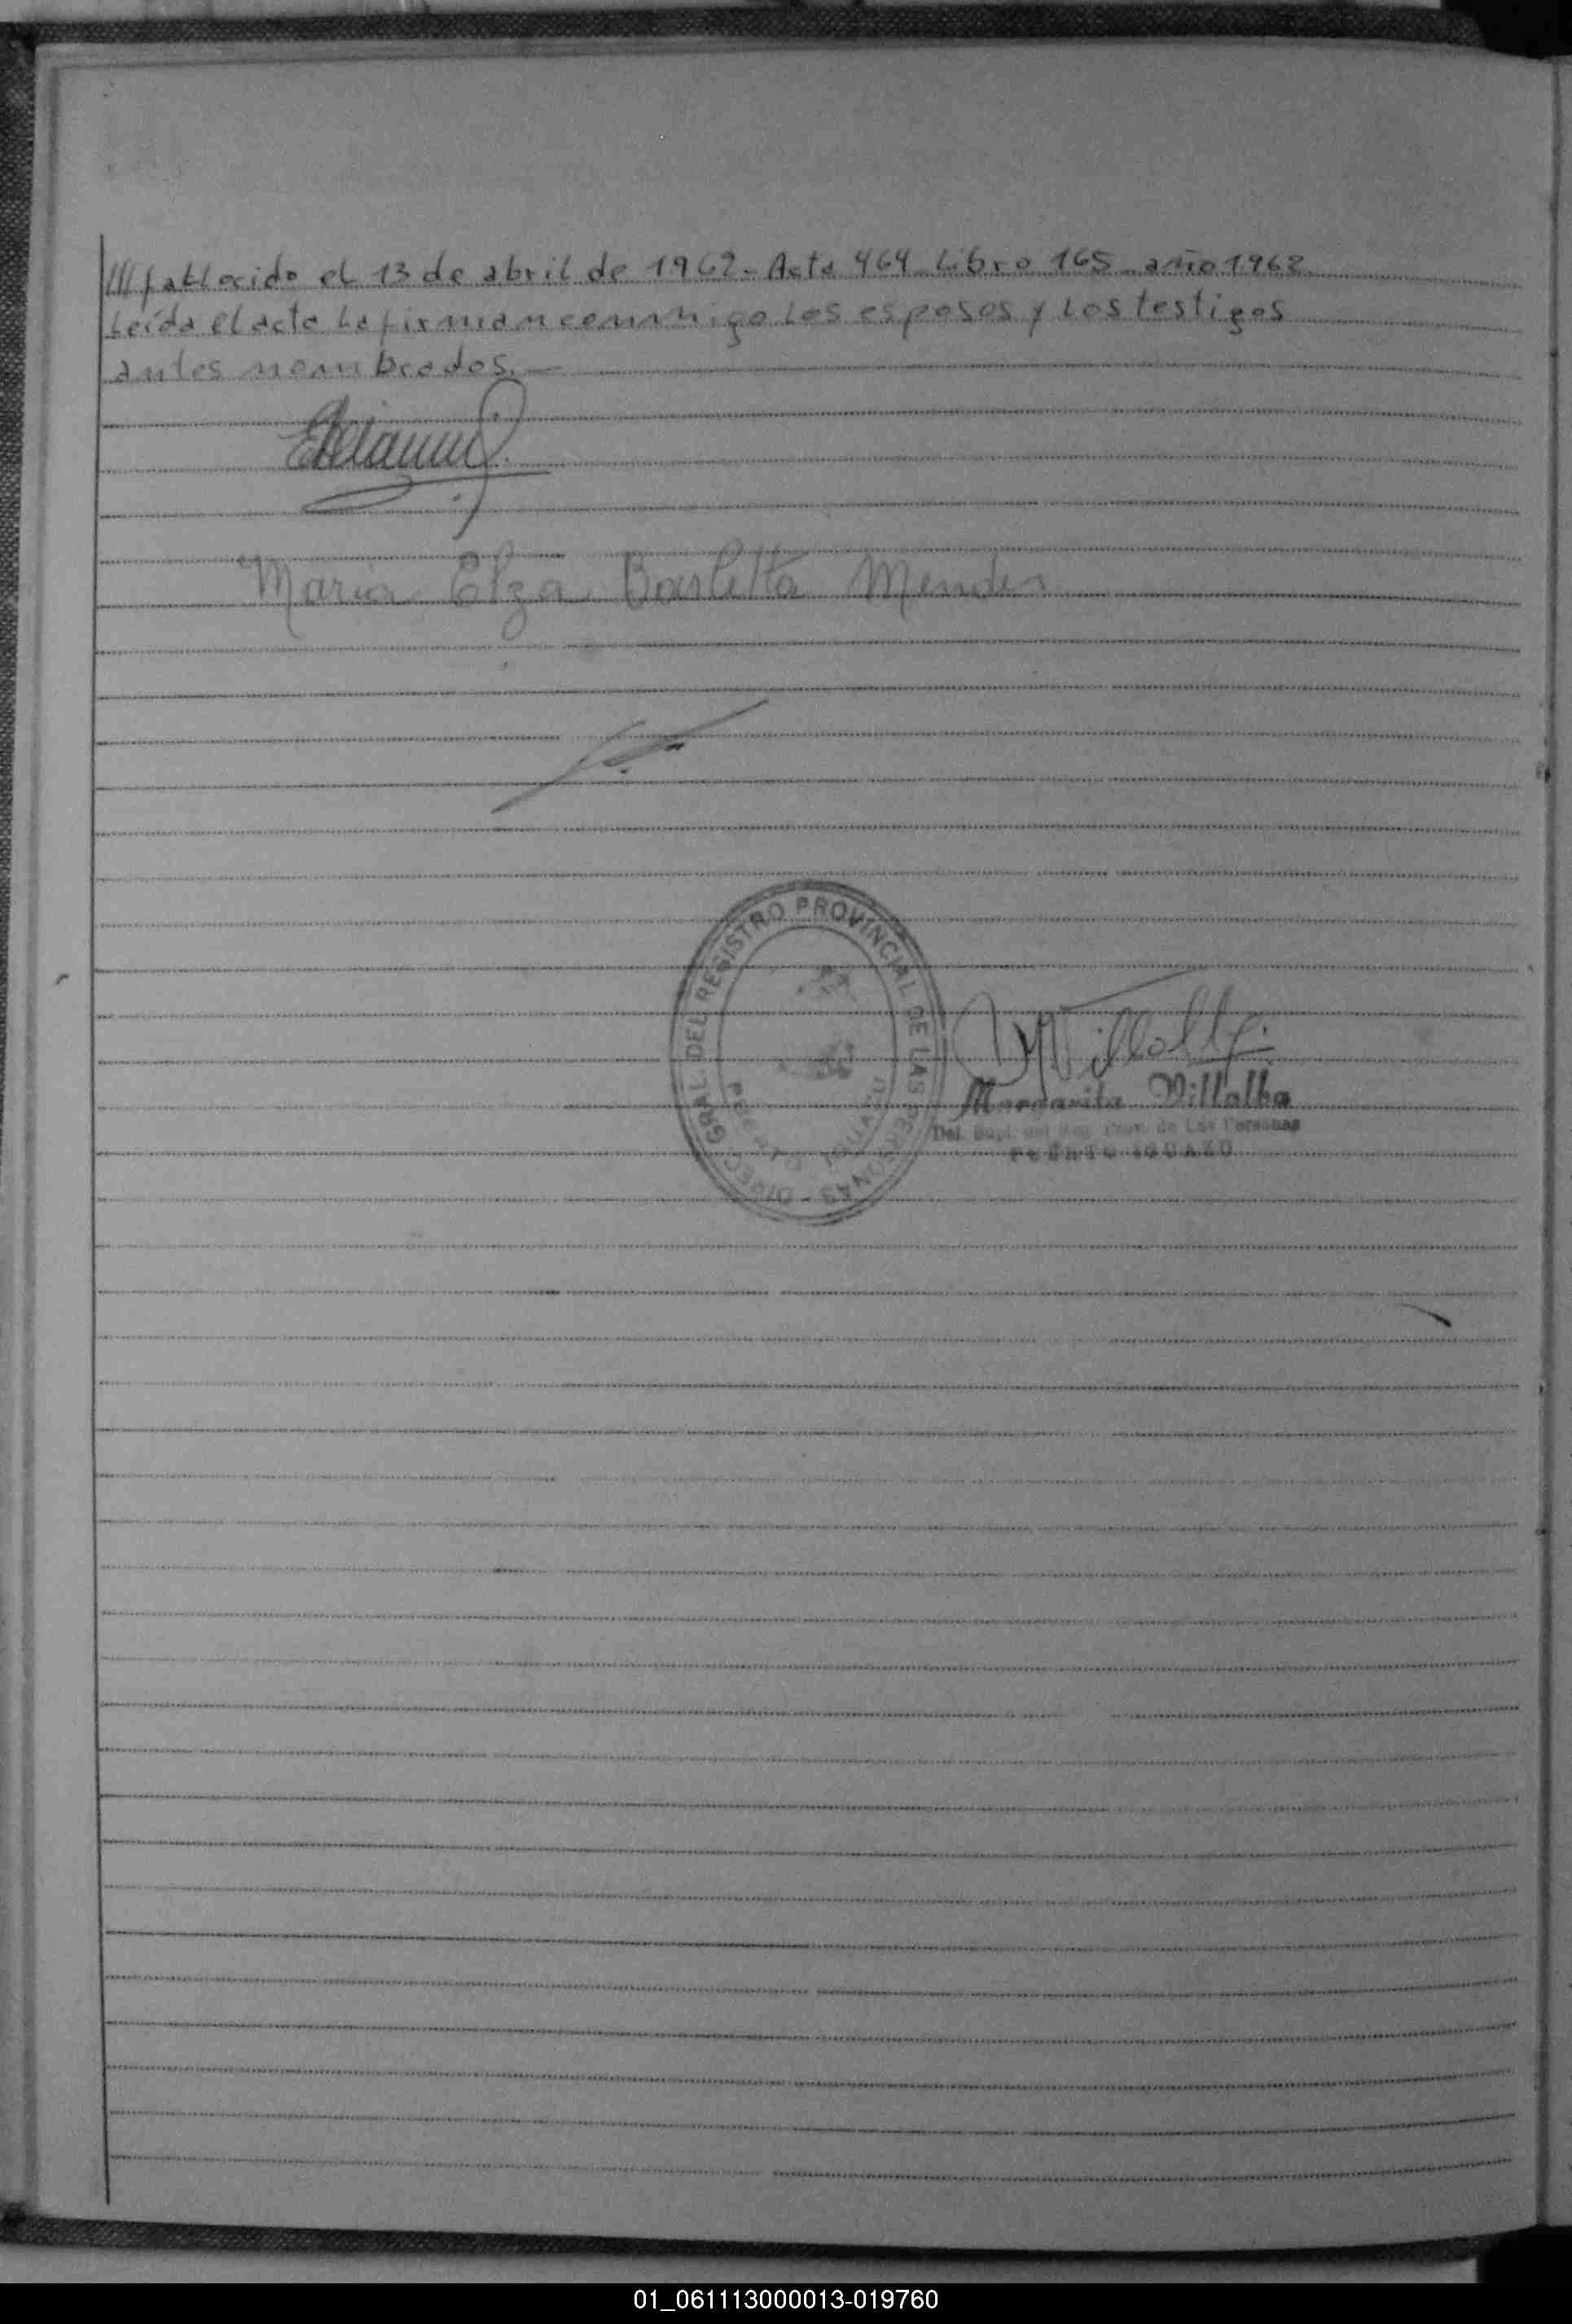 ///fallecido el 13 de abril de 1962. Acta 464 Libro 165 año 1962
Leída el acta la firman conmigo los esposos y los testigos
antes nombrados.—
Maria Elza Barletta Mendes
DIREC. GRAL. DEL REGISTRO PROVINCIAL DE LAS PERSONAS -
PUERTO IGUAZU
MVillalba
Margarita Villalba
Del. Supl. del Reg. Prov. de Las Personas
PUERTO IGUAZU
01_061113000013-019760